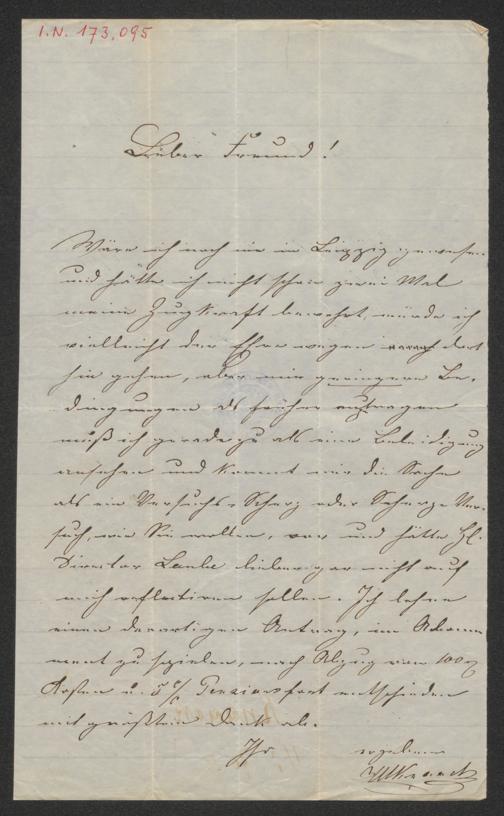 I.N. 173.095
Lieber Freund!
Wäre ich noch nie in Leipzig gewesen
und hätte ich nicht schon zwei Mal
meine Zugkraft bewehrt, würde ich
vielleicht der Ehre wegen dort
hin gehen, aber mir geringere Be-
dingungen als früher antragen
muß ich geradezu als eine Beleidigung
ansehen und kommt mir die Sache
als ein Versuchs-Scherz oder Scherz-Ver-
such, wie Sie wollen, vor und hätte H.
Director Laube lieber gar nicht auf
mich reflectiren sollen. Ich lehne
einen derartigen Antrag, im Abonne
ment zu spielen, nach Abzug von 100
Kosten u. 5 % Pensionsfont entschieden
mit größtem Dank ab.
Ihr ergebener
WKnaack